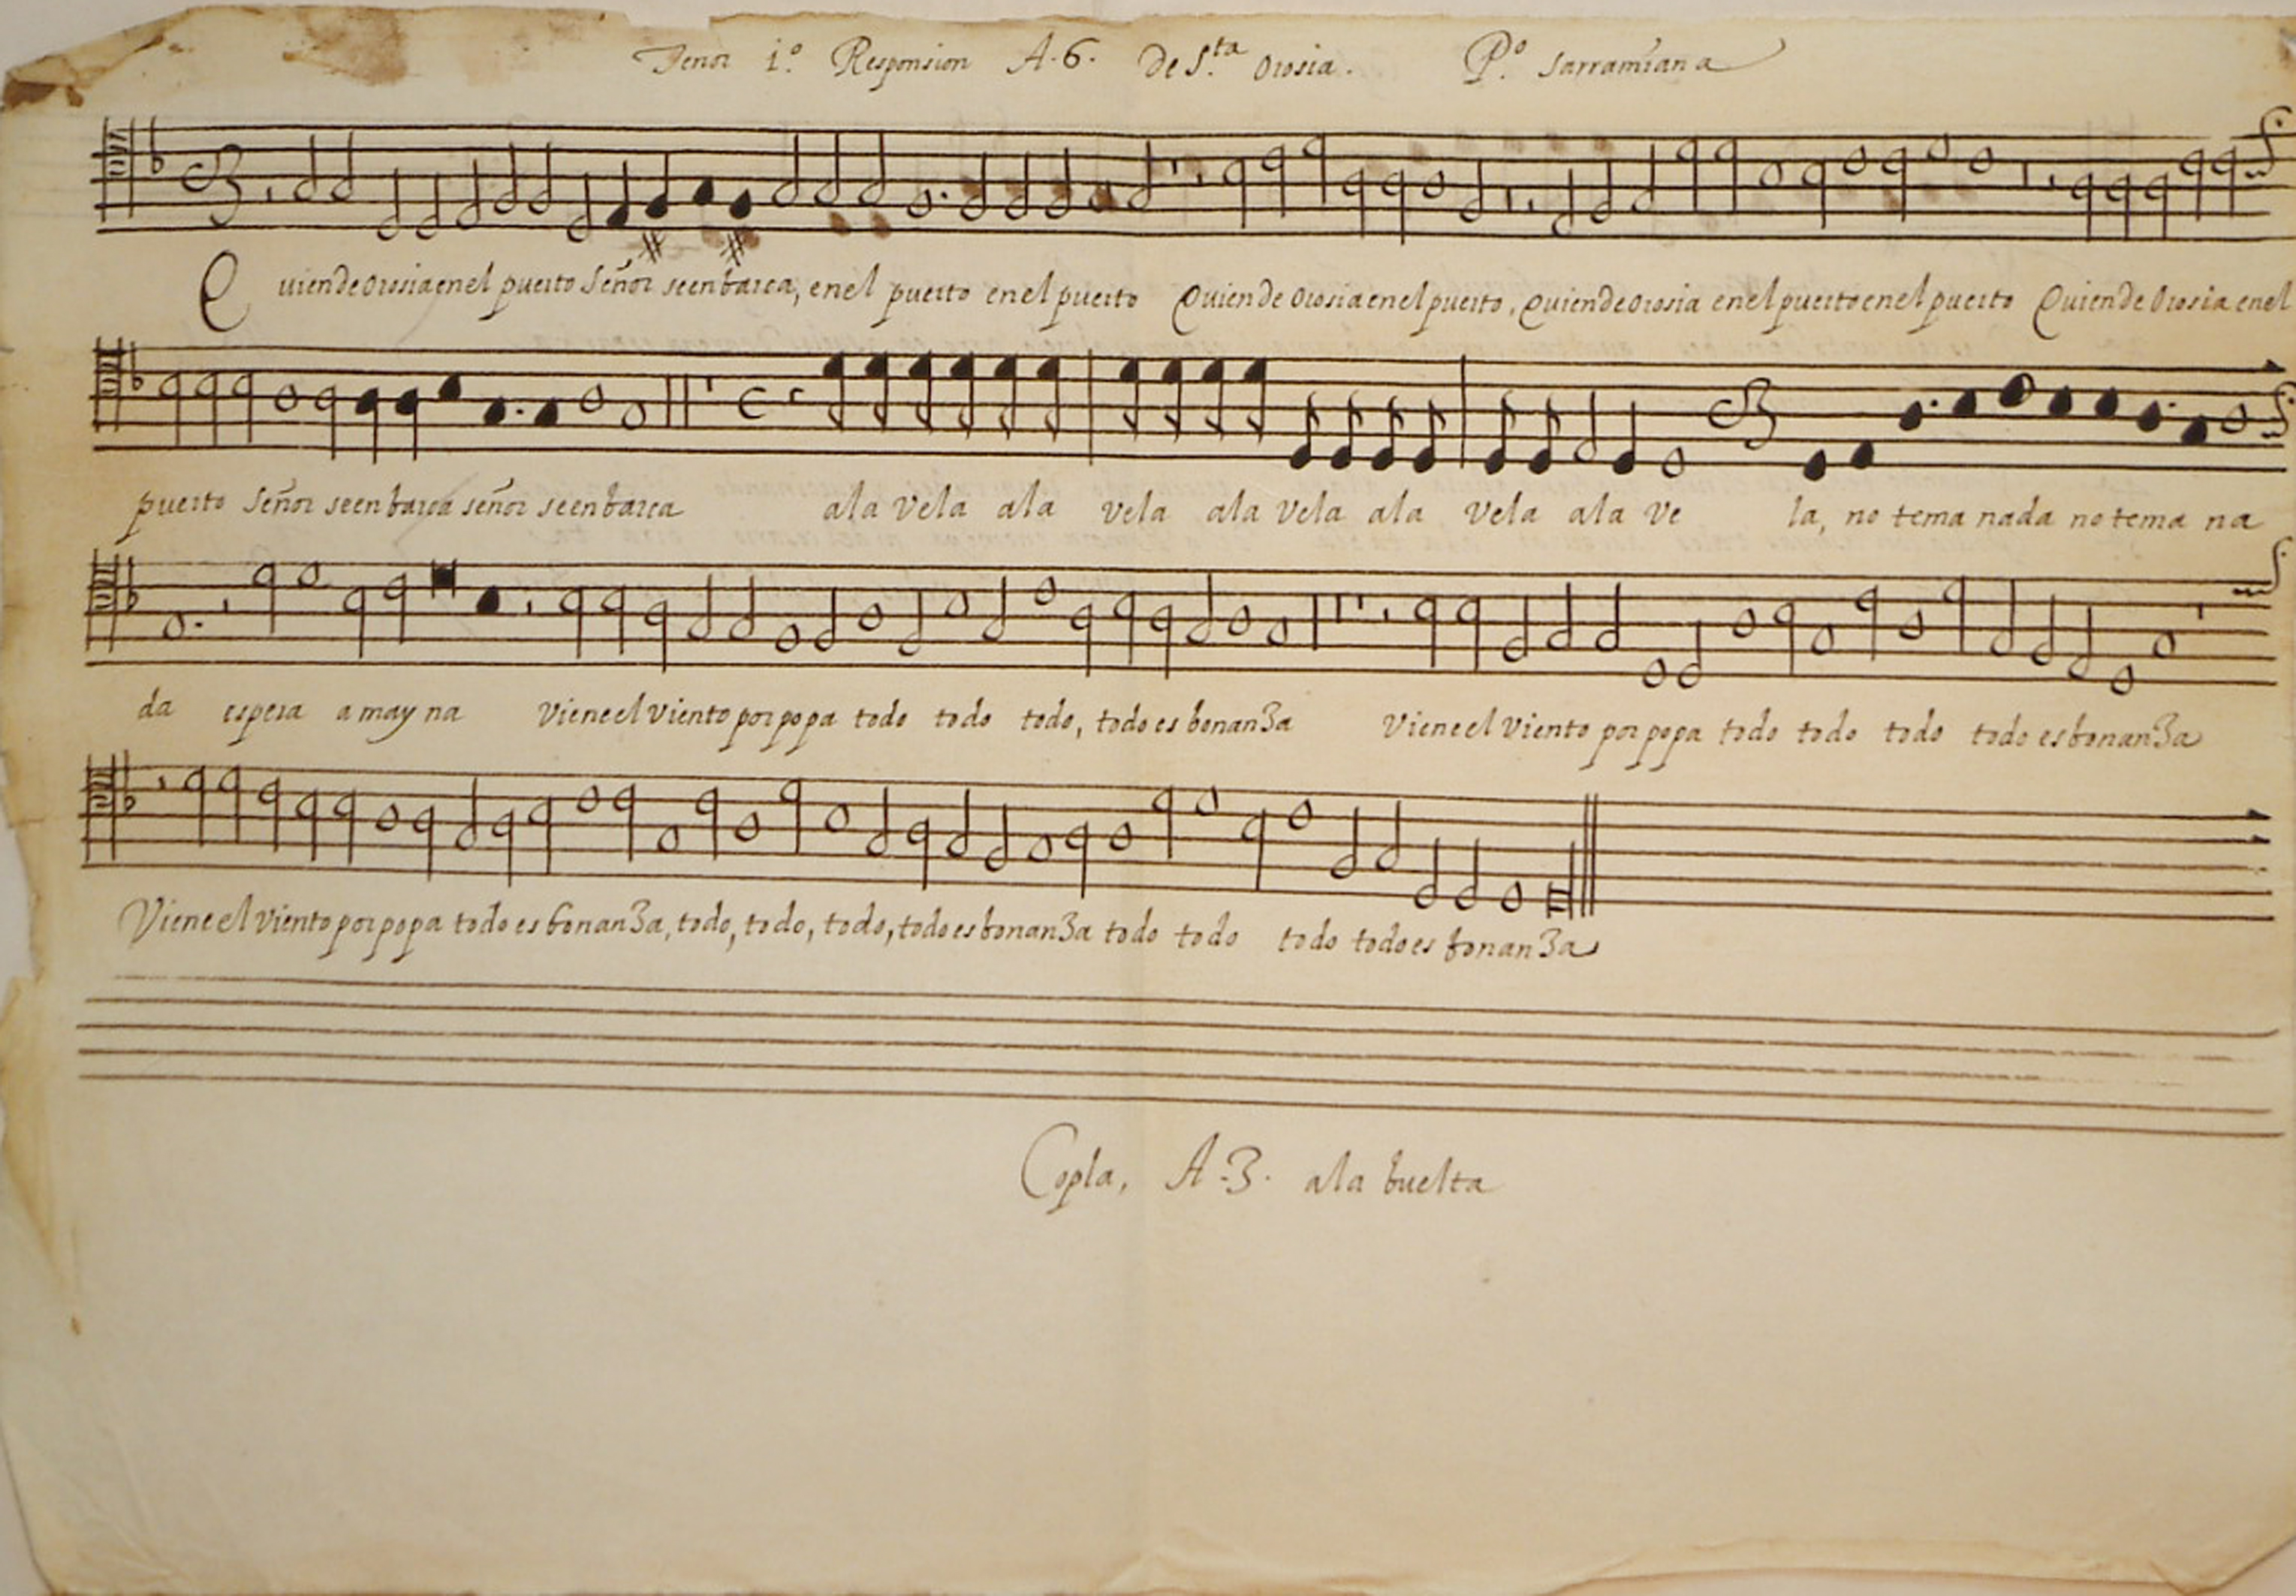 Tenor 1.º Responsion A.6. De S.ta Orosia. P.º Sarramiana
Quien de Orosia en el puerto Señor se enbarca, en el puerto en el puerto Quien de Orosia en el puerto, Quien de Orosia en el puerto en el puerto Quien de Orosia en el
puerto Señor se enbarca señor se enbarca ala vela ala vela ala vela ala vela ala ve la, no tema nada no tema na
da espera amayna Viene el viento por popa todo todo todo, todo es bonanza Viene el viento por popa todo todo todo todo es bonanza
Viene el viento por popa todo es bonanza, todo, todo, todo, todo es bonanza todo todo todo todo es bonanza
Copla, A.3. ala buelta